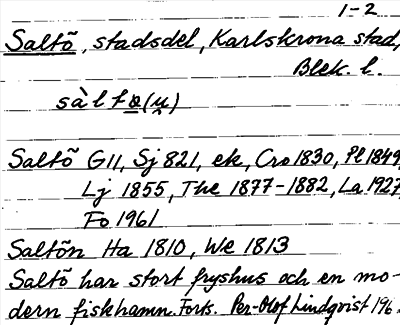 1-2
Saltö, stadsdel, Karlskrona stad,
Blek. l.
sàltø(u̯)
Saltö G11, Sj 821, ek, Cro 1830, Pl 1849,
Lj 1855, The 1877-1882, La 1927,
Fo 1961
Saltön Ha 1810, We 1813
Saltö har stort fryshus och en mo-
dern fiskhamn. Forts. Per-Olof Lindqvist 196